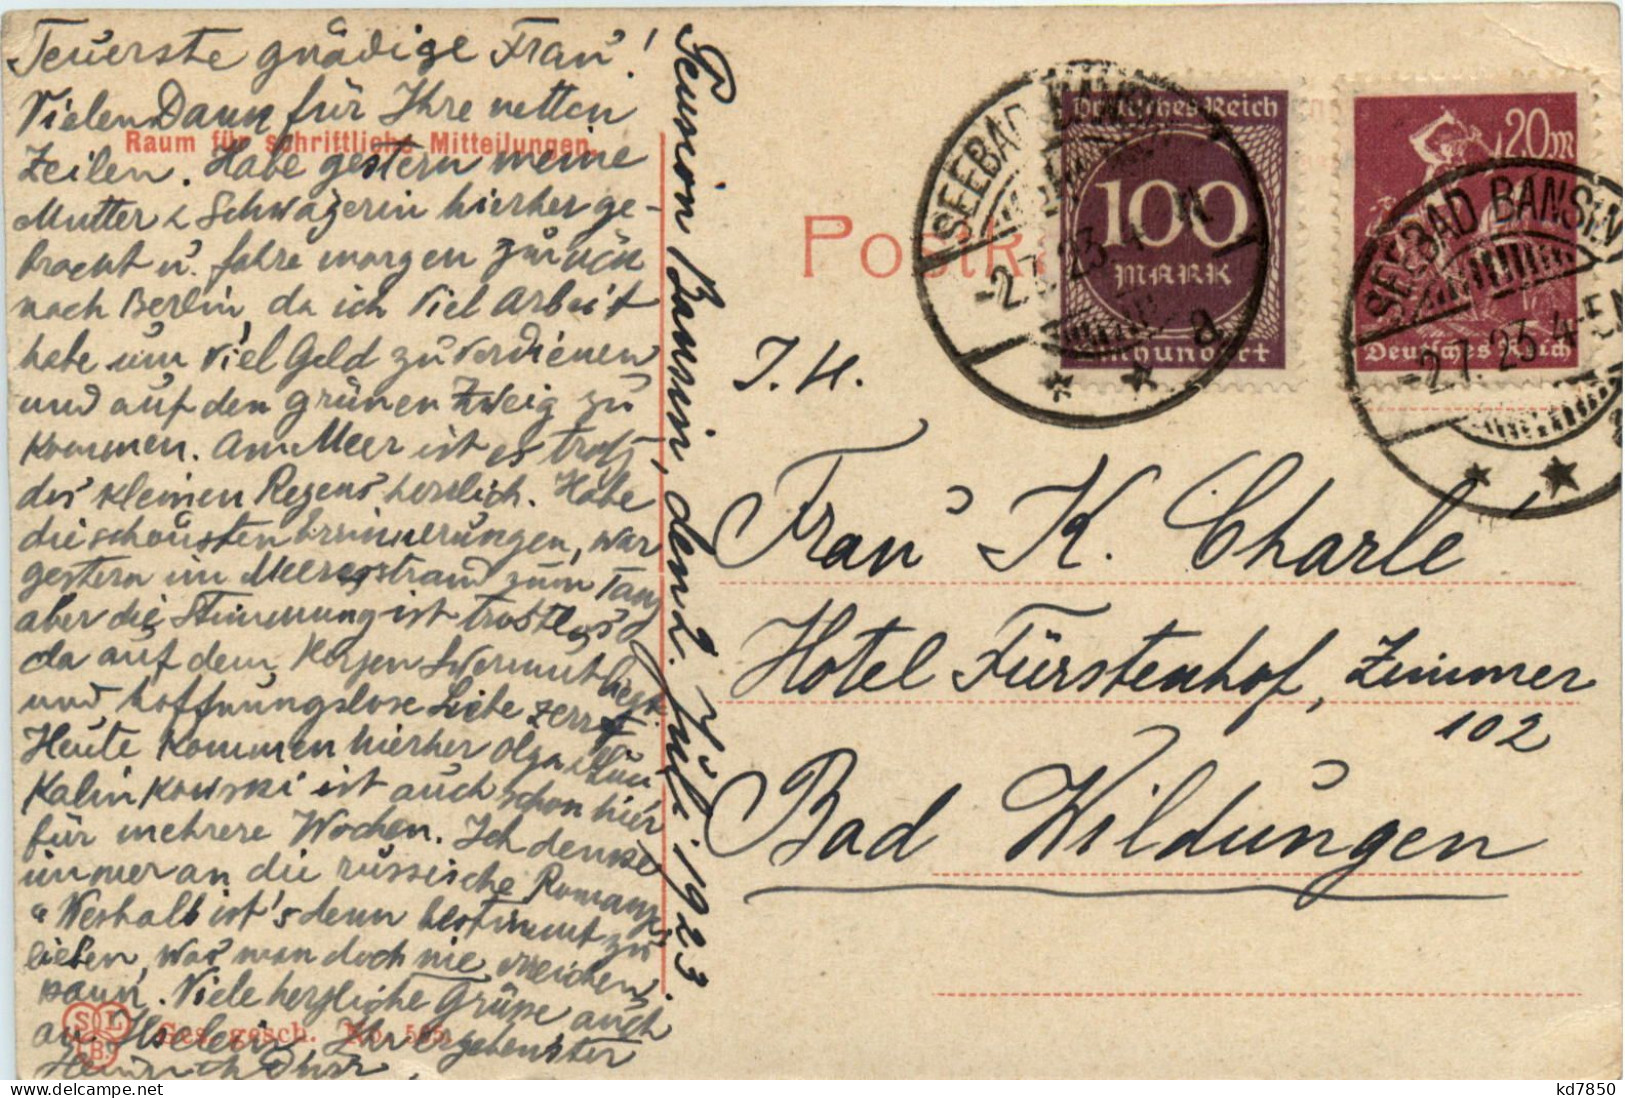 Teuerste gnädige Frau!
Vielen Dank für Ihre netten
Raum für schriftliche Mitteilungen.
Zeilen. Habe gestern meine
Mutter & Schwägerin hierher ge-
bracht u. fahre morgen zurück
nach Berlin, da ich viel Arbeit
habe um viel Geld zu verdienen
und auf den grünen Zweig zu
kommen. Am Meer ist es trotz
des kleinen Regens herrlich. Habe
die schönsten Erinnerungen, war
gestern im Meeresstrand zum Tanz
aber die Stimmung ist trostlos
da auf dem Herzen Wermut liegt
und hoffnungslose Liebe zerrt
Heute kommen hierher Olga &
Kalinkowski ist auch schon hier
für mehrere Wochen. Ich denke
immer an die russische Romanze
"Weshalb ist's denn bestimmt zu
lieben, was man doch nie erreichen
kann". Viele herzliche Grüße auch
an Ilselein Ihr ergebenster
Heinrich
SLB
Ges. gesch. No.
Pension Bansin, den 2. Juli 1923
Deutsches Reich
100
MARK
Einhundert
20 M
Deutsches Reich
SEEBAD BANSIN
-2.7.23.4-
a
SEEBAD BANSIN
-2.7.23.4-5N
Postk
I. H.
Frau K. Charle
Hotel Fürstenhof, Zimmer
102
Bad Wildungen
kd7850